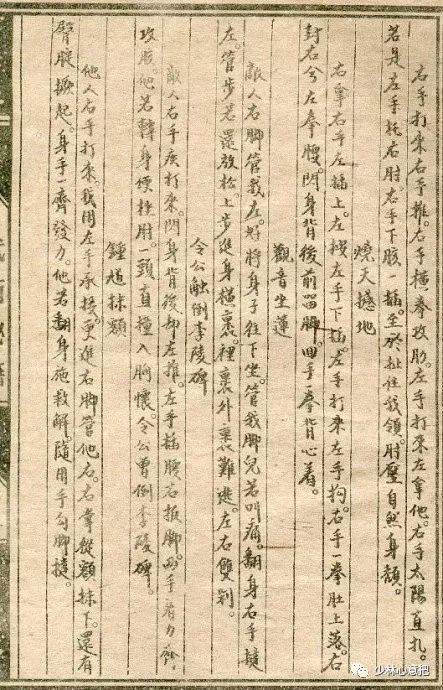 右手打來右手推。右手橫拳攻肋。左手打來左拿他。右手太陽直扎。
若是左手托右肘。右手下胲一插。至於扯住我領。肘壓自然身頹。
燒天撼地
右拿右手左插上。左按左手下插。左手打來左手拘。右手一拳肚上落。右
封右兮左拳腰。閃身背後前留脚。曲手一拳背心着。
觀音坐蓮
敵人右脚管我左。好將身子往下坐。管我脚兒若叫痛。翻身右手
左。管步若還放松上步進身橫裹。裡裹外裹難進。左右雙剁。
令公觸倒李陵碑
敵人右手疾打來。閃身背後却左推。左手插腰右扳脚。曲手着力
攻胲。他若轉身便拄肘。一頭直撞入胸懷。令公曾倒李陵碑。
鍾馗抹額
他人右手打來。我用左手承接。更進右脚管他右。右掌從額抹下。還有
臂腿掀起。身手一齊發力。他若翻身施救解。隨用手勾脚
少林心意把